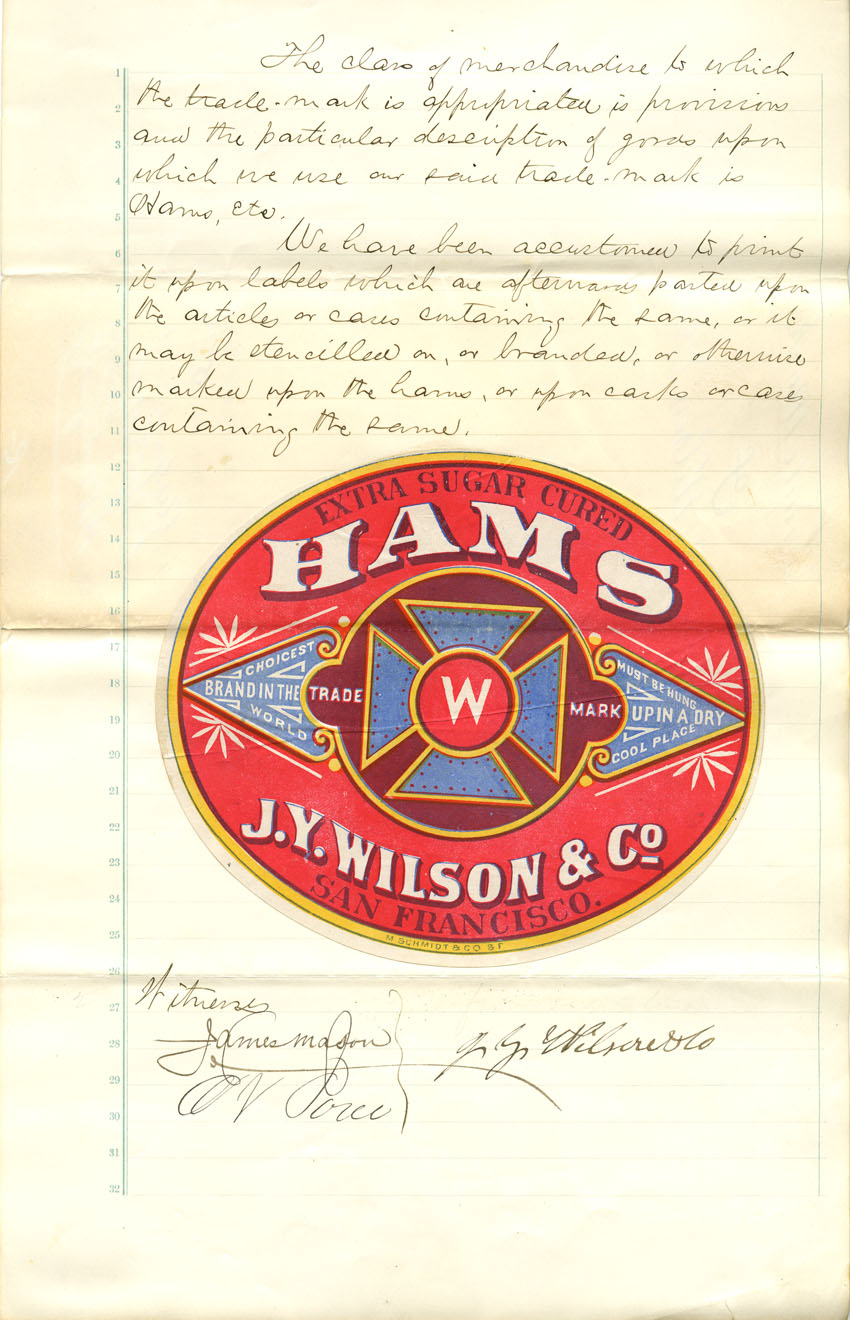 The class of merchandise to which
1
the trade-mark is appropriated is provisions
2
and the particular description of goods upon
3
which we use our said trade-mark is
4
Hams, etc.
5
We have been accustomed to print
6
it upon labels which are afterwards pasted upon
7
the articles or cases containing the same, or it
8
may be stencilled on, or branded, or otherwise
9
marked upon the hams, or upon casks or cases
10
containing the same.
11
12
13
14
15
16
17
18
19
20
21
22
23
24
25
26
27
28
29
30
31
32
EXTRA SUGAR CURED
HAMS
CHOICEST
BRAND IN THE
WORLD
TRADE
W
MARK
MUST BE HUNG
UP IN A DRY
COOL PLACE
J.Y. WILSON & Co
SAN FRANCISCO.
M. SCHMIDT & CO. S.F.
Witnesses
James Mason
J. Y. Wilson & Co